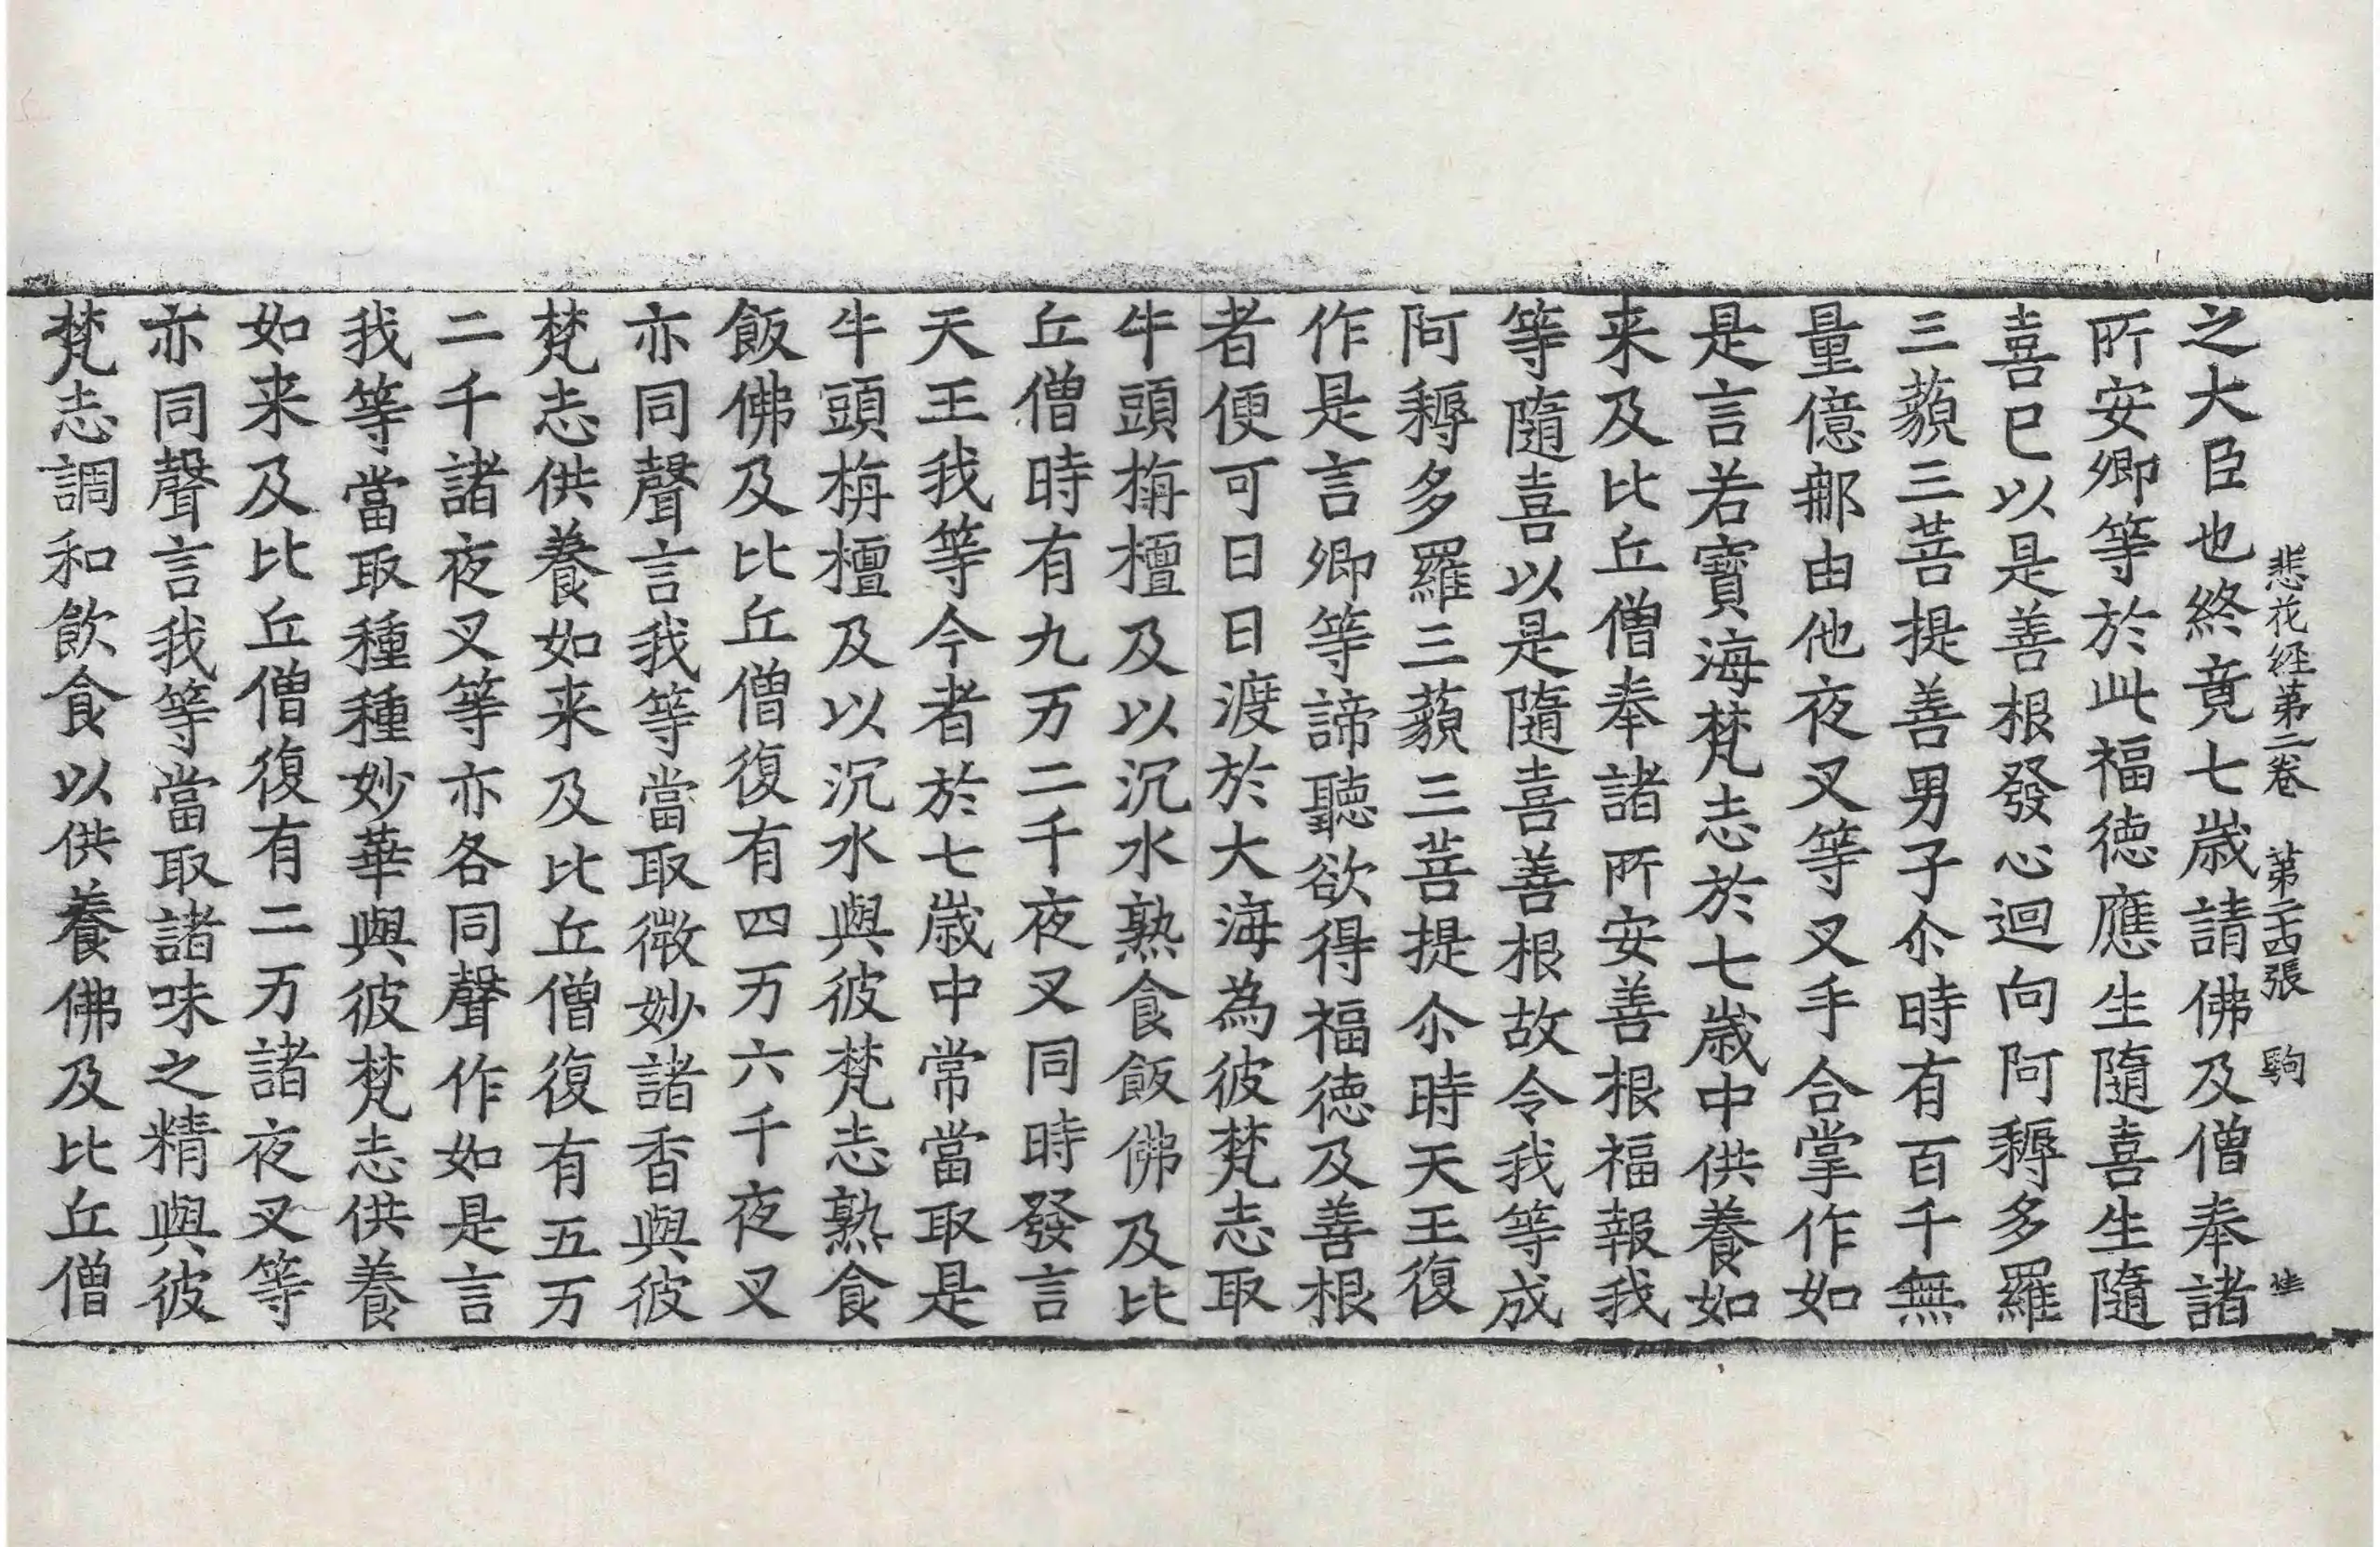 悲花經第二卷　第二十四張　駒
之大臣也終竟七歲請佛及僧奉諸
所安卿等於此福德應生隨喜生隨
喜已以是善根發心迴向阿耨多羅
三藐三菩提善男子尒時有百千無
量億那由他夜叉等叉手合掌作如
是言若寶海梵志於七歲中供養如
来及比丘僧奉諸所安善根福報我
等隨喜以是隨喜善根故令我等成
阿耨多羅三藐三菩提尒時天王復
作是言卿等諦聽欲得福德及善根
者便可日日渡於大海為彼梵志取
牛頭栴檀及以沉水熟食飯佛及比
丘僧時有九万二千夜叉同時發言
天王我等今者於七歲中常當取是
牛頭栴檀及以沉水與彼梵志熟食
飯佛及比丘僧復有四万六千夜叉
亦同聲言我等當取微妙諸香與彼
梵志供養如来及比丘僧復有五万
二千諸夜叉等亦各同聲作如是言
我等當取種種妙華與彼梵志供養
如来及比丘僧復有二万諸夜叉等
亦同聲言我等當取諸味之精與彼
梵志調和飲食以供養佛及比丘僧